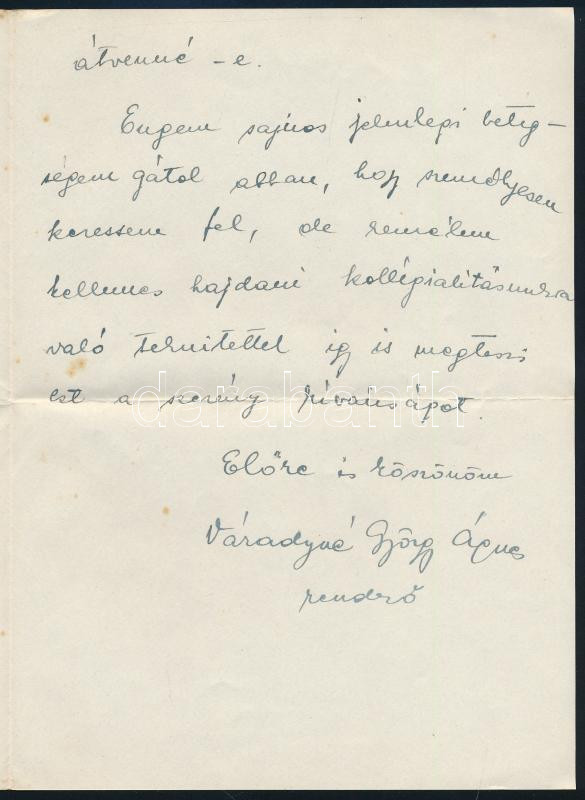 átvenné -e.
Engem sajnos jelenlegi beteg-
ségem gátol abban, hogy személyesen
keressem fel, de remélem
kellemes hajdani kollégialitásunkra
való tekintettel így is megteszi
ezt a szerény kívánságot.
darabanth
Előre is köszönöm
Váradyné György Ágnes
rendező